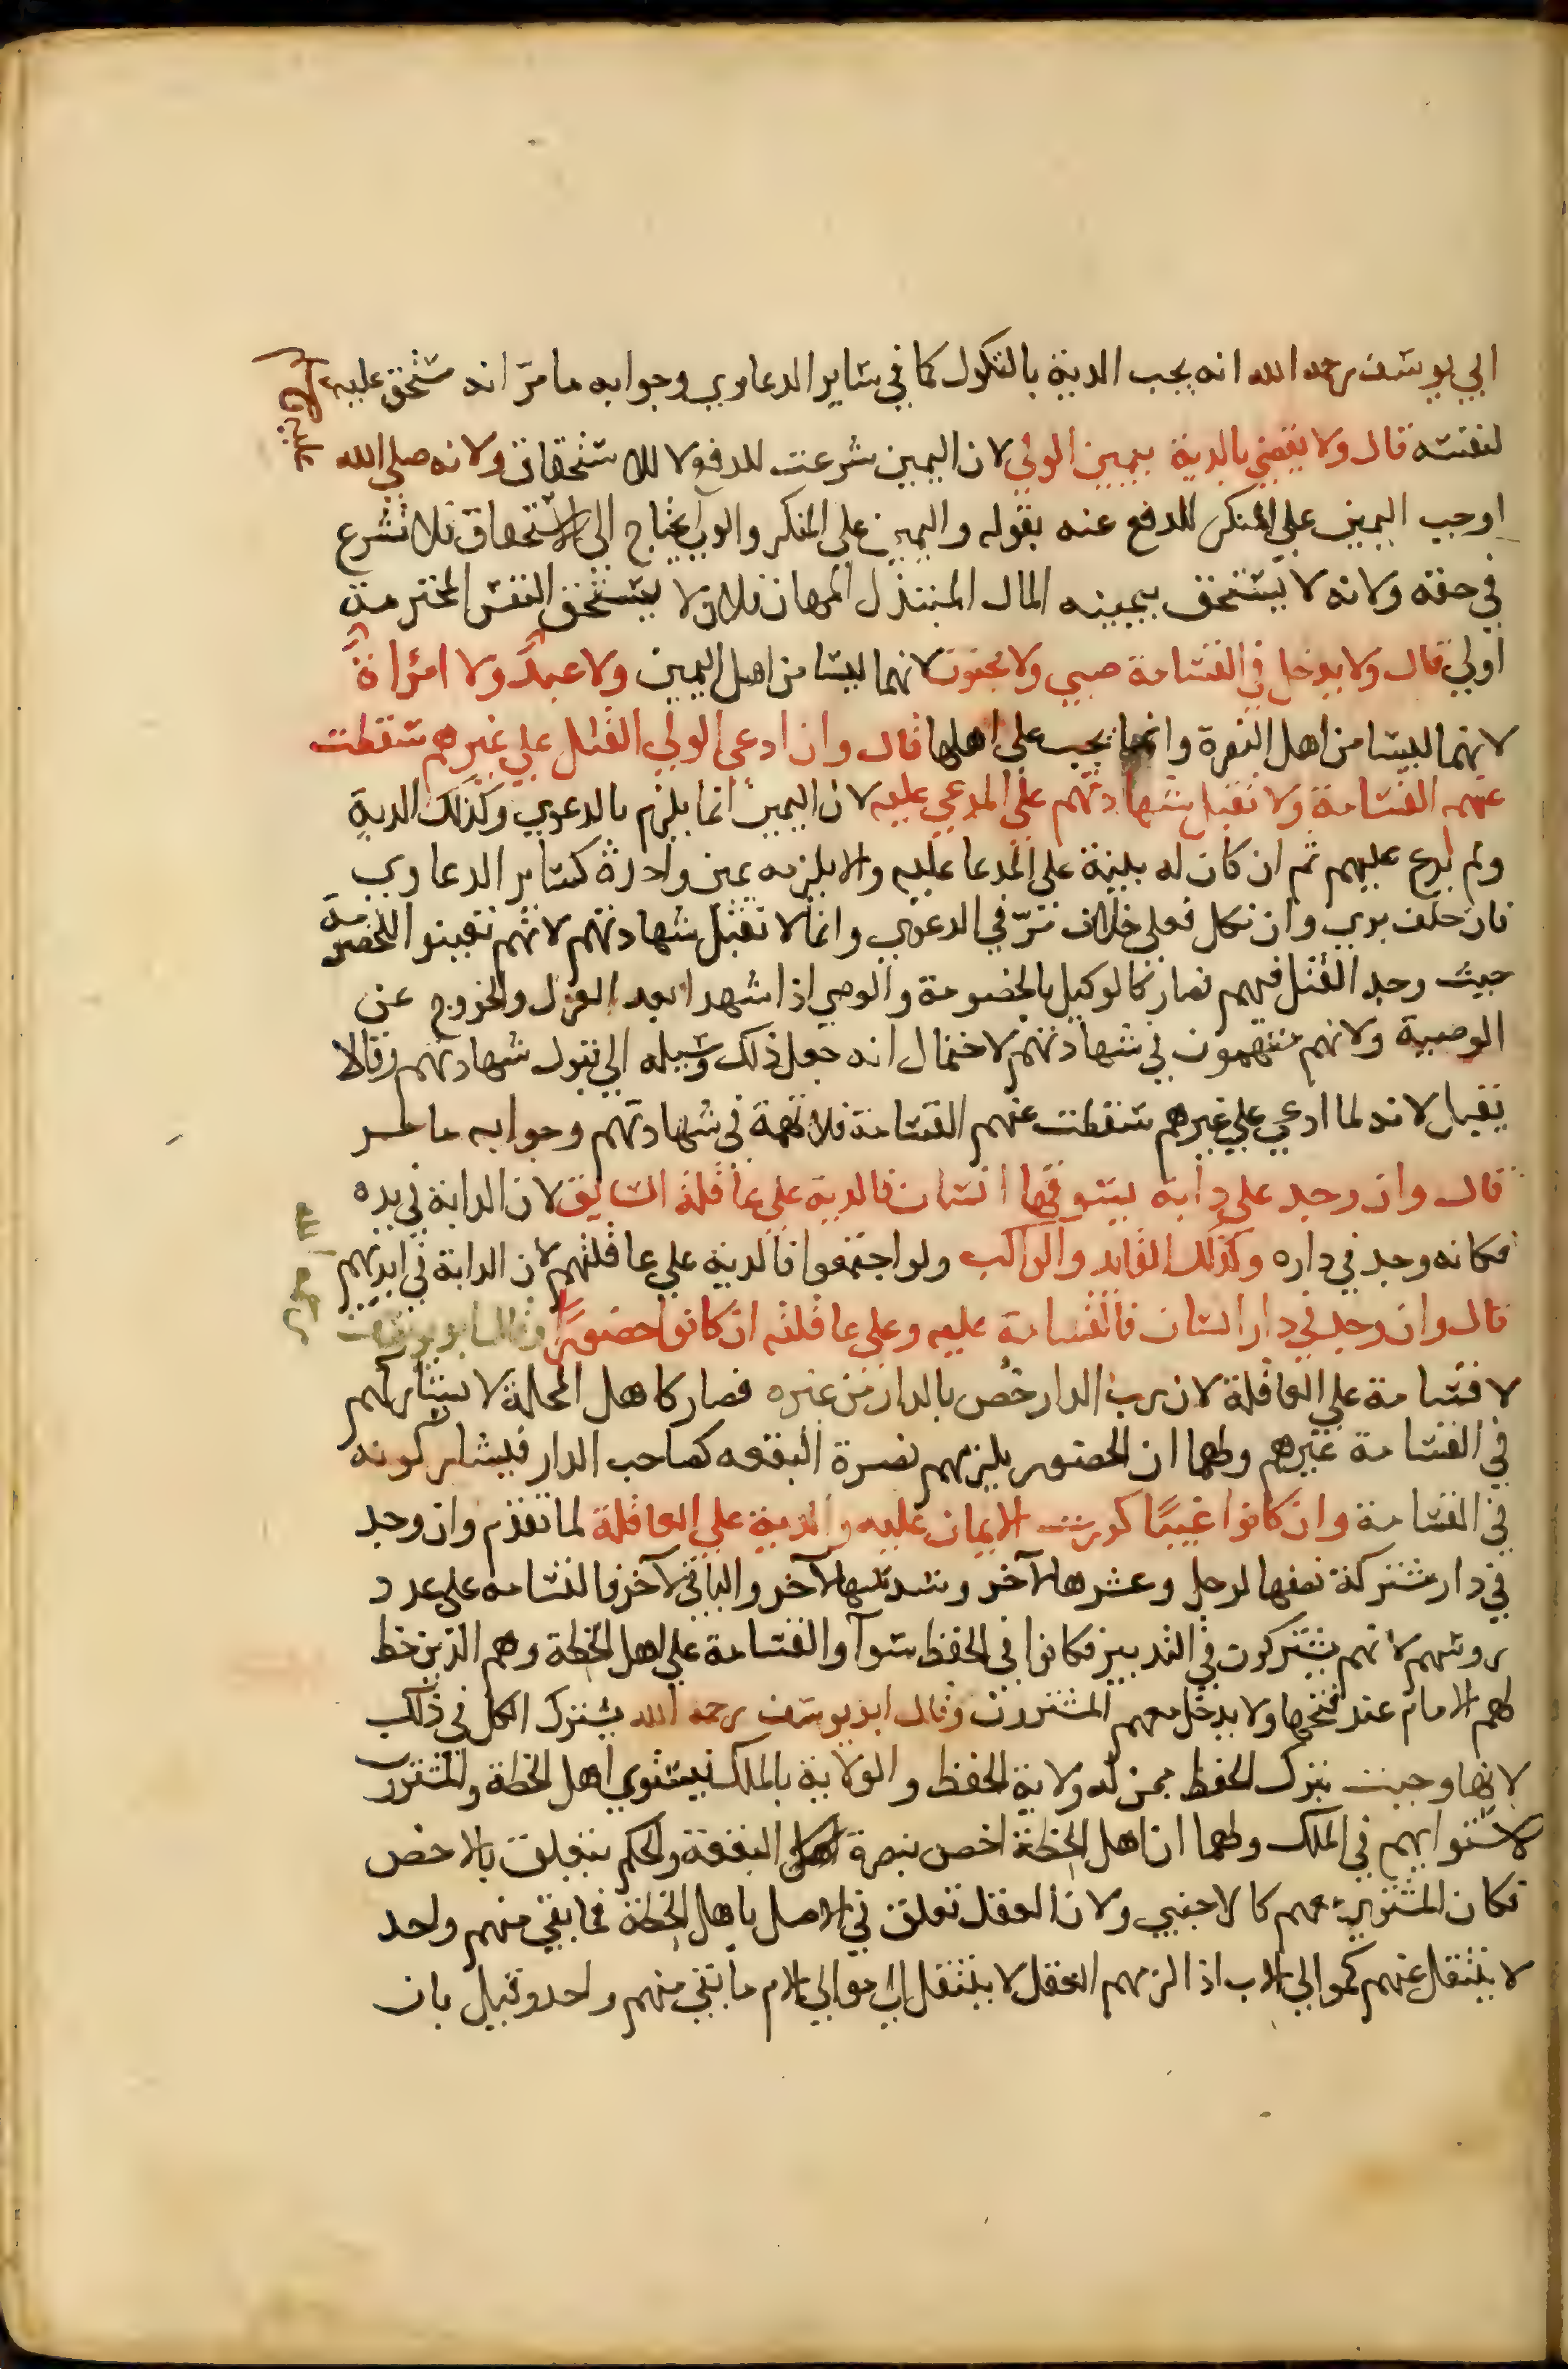 ابي يوسف رحمه الله انه يجب الدية بالنكول كما في ساير الدعاوي وجوابه ما مرّ انه مستحق عليه
لنفسه قال ولا يقضي بالدية بيمين الولي لان اليمين شرعت للدفع لا للاستحقاق ولانه صلي الله
عليه
اوجب اليمين علي المنكر للدفع عنه بقوله واليمين علي المنكر والولي يحتاج الي الاستحقاق فلا تشرع
في حقه ولانه لا يستحق بيمينه المال المبتذل المهان فلان لا يستحق النفس المحترمة
اولي قال ولا يدخل في القسامة صبي ولا مجنون لانهما ليسا من اهل اليمين ولا عبدٌ ولا امرأةٌ
لانهما ليسا من اهل النصرة وانما يجب علي اهلها قال وان ادعي الولي القتل علي غيرهم سقطت
عنهم القسامة ولا تقبل شهادتهم علي المدعي عليه لان اليمين انما يلزم بالدعوي وكذلك الدية
ولم يدع عليهم ثم ان كان له بينة علي المدعا عليه والا يلزمه يمين واحدة كساير الدعاوي
فان حلف بري وان نكل فعلي خلاف مرّ في الدعوي وانما لا تقبل شهادتهم لانهم تعينوا للخصومة
حيث وجد القتل فيهم فصار كالوكيل بالخصومة والوصي اذا شهدا بعد العزل والخروج عن
الوصية ولانهم متهمون في شهادتهم لاحتمال انه جعل ذلك وسيله الي قبول شهادتهم وقالا
تقبل لانه لما ادعي علي غيرهم سقطت عنهم القسامة فلا تهمة في شهادتهم وجوابه ما مر
قال وان وجد علي دابة يسوقها انسان فالدية علي عاقلة السايق لان الدابة في يده
فكانه وجد في داره وكذلك القايد والراكب ولو اجتمعوا فالدية علي عاقلتهم لان الدابة في ايديهم
قال وان وجد في دار انسان فالقسامة عليه وعلي عاقلته ان كانوا حضورًا وقال ابو يوسف
لا قسامة علي العاقلة لان رب الدار خُص بالدار من غيره فصار كاهل المحلة لا يشاركهم
في القسامة غيرهم ولهما ان الحضور يلزمهم نصرة البقعه كصاحب الدار فيشاركونه
في القسامة وان كانوا غيبًا كررت الايمان عليه والدية علي العاقلة لما تقدم وان وجد
في دار مشتركة نصفها لرجل وعشرها لآخر وسدسها لآخر والباقي لآخر فالقسامه علي عدد
روسهم لانهم يشتركون في التدبير فكانوا في الحفظ سوآ والقسامة علي اهل الخطة وهم الذين خط
لهم الامام عند فتحها ولا يدخل معهم المشترون وقال ابو يوسف رحمه الله يشترك الكل في ذلك
لانها وجبت بترك الحفظ ممن له ولاية الحفظ والولاية بالملك فيستوي اهل الخطة والمشترون
لاستوايهم في الملك ولهما ان اهل الخطة اخص بنصرة البقعة والحكم يتعلق بالاخص
فكان المشتري معهم كالاجنبي ولان العقل تعلق في الاصل باهل الخطة فما بقي منهم واحد
لا ينتقل عنهم كموالي الاب اذا لزمهم العقل لا ينتقل الي موالي الام ما بقي منهم واحد وقيل بان